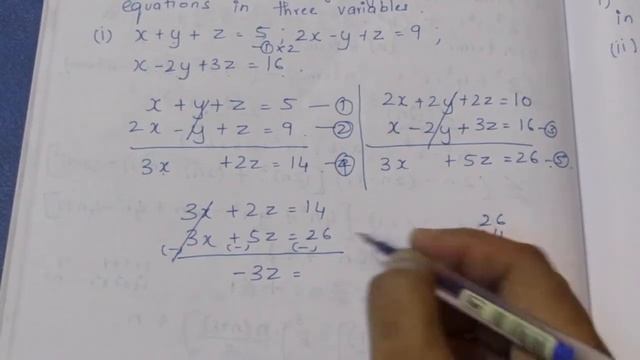 equations in three variables.
(i) x+y+z=5 ; 2x-y+z=9 ;
-①×2
x-2y+3z=16.
x+y+z=5 -①
2x-y+z=9 -②
3x +2z=14 -④
2x+2y+2z=10
x-2y+3z=16-③
3x +5z=26-⑤
3x+2z=14
3x+5z=26
(-) (-) (-)
-3z=
26
in
(ii)